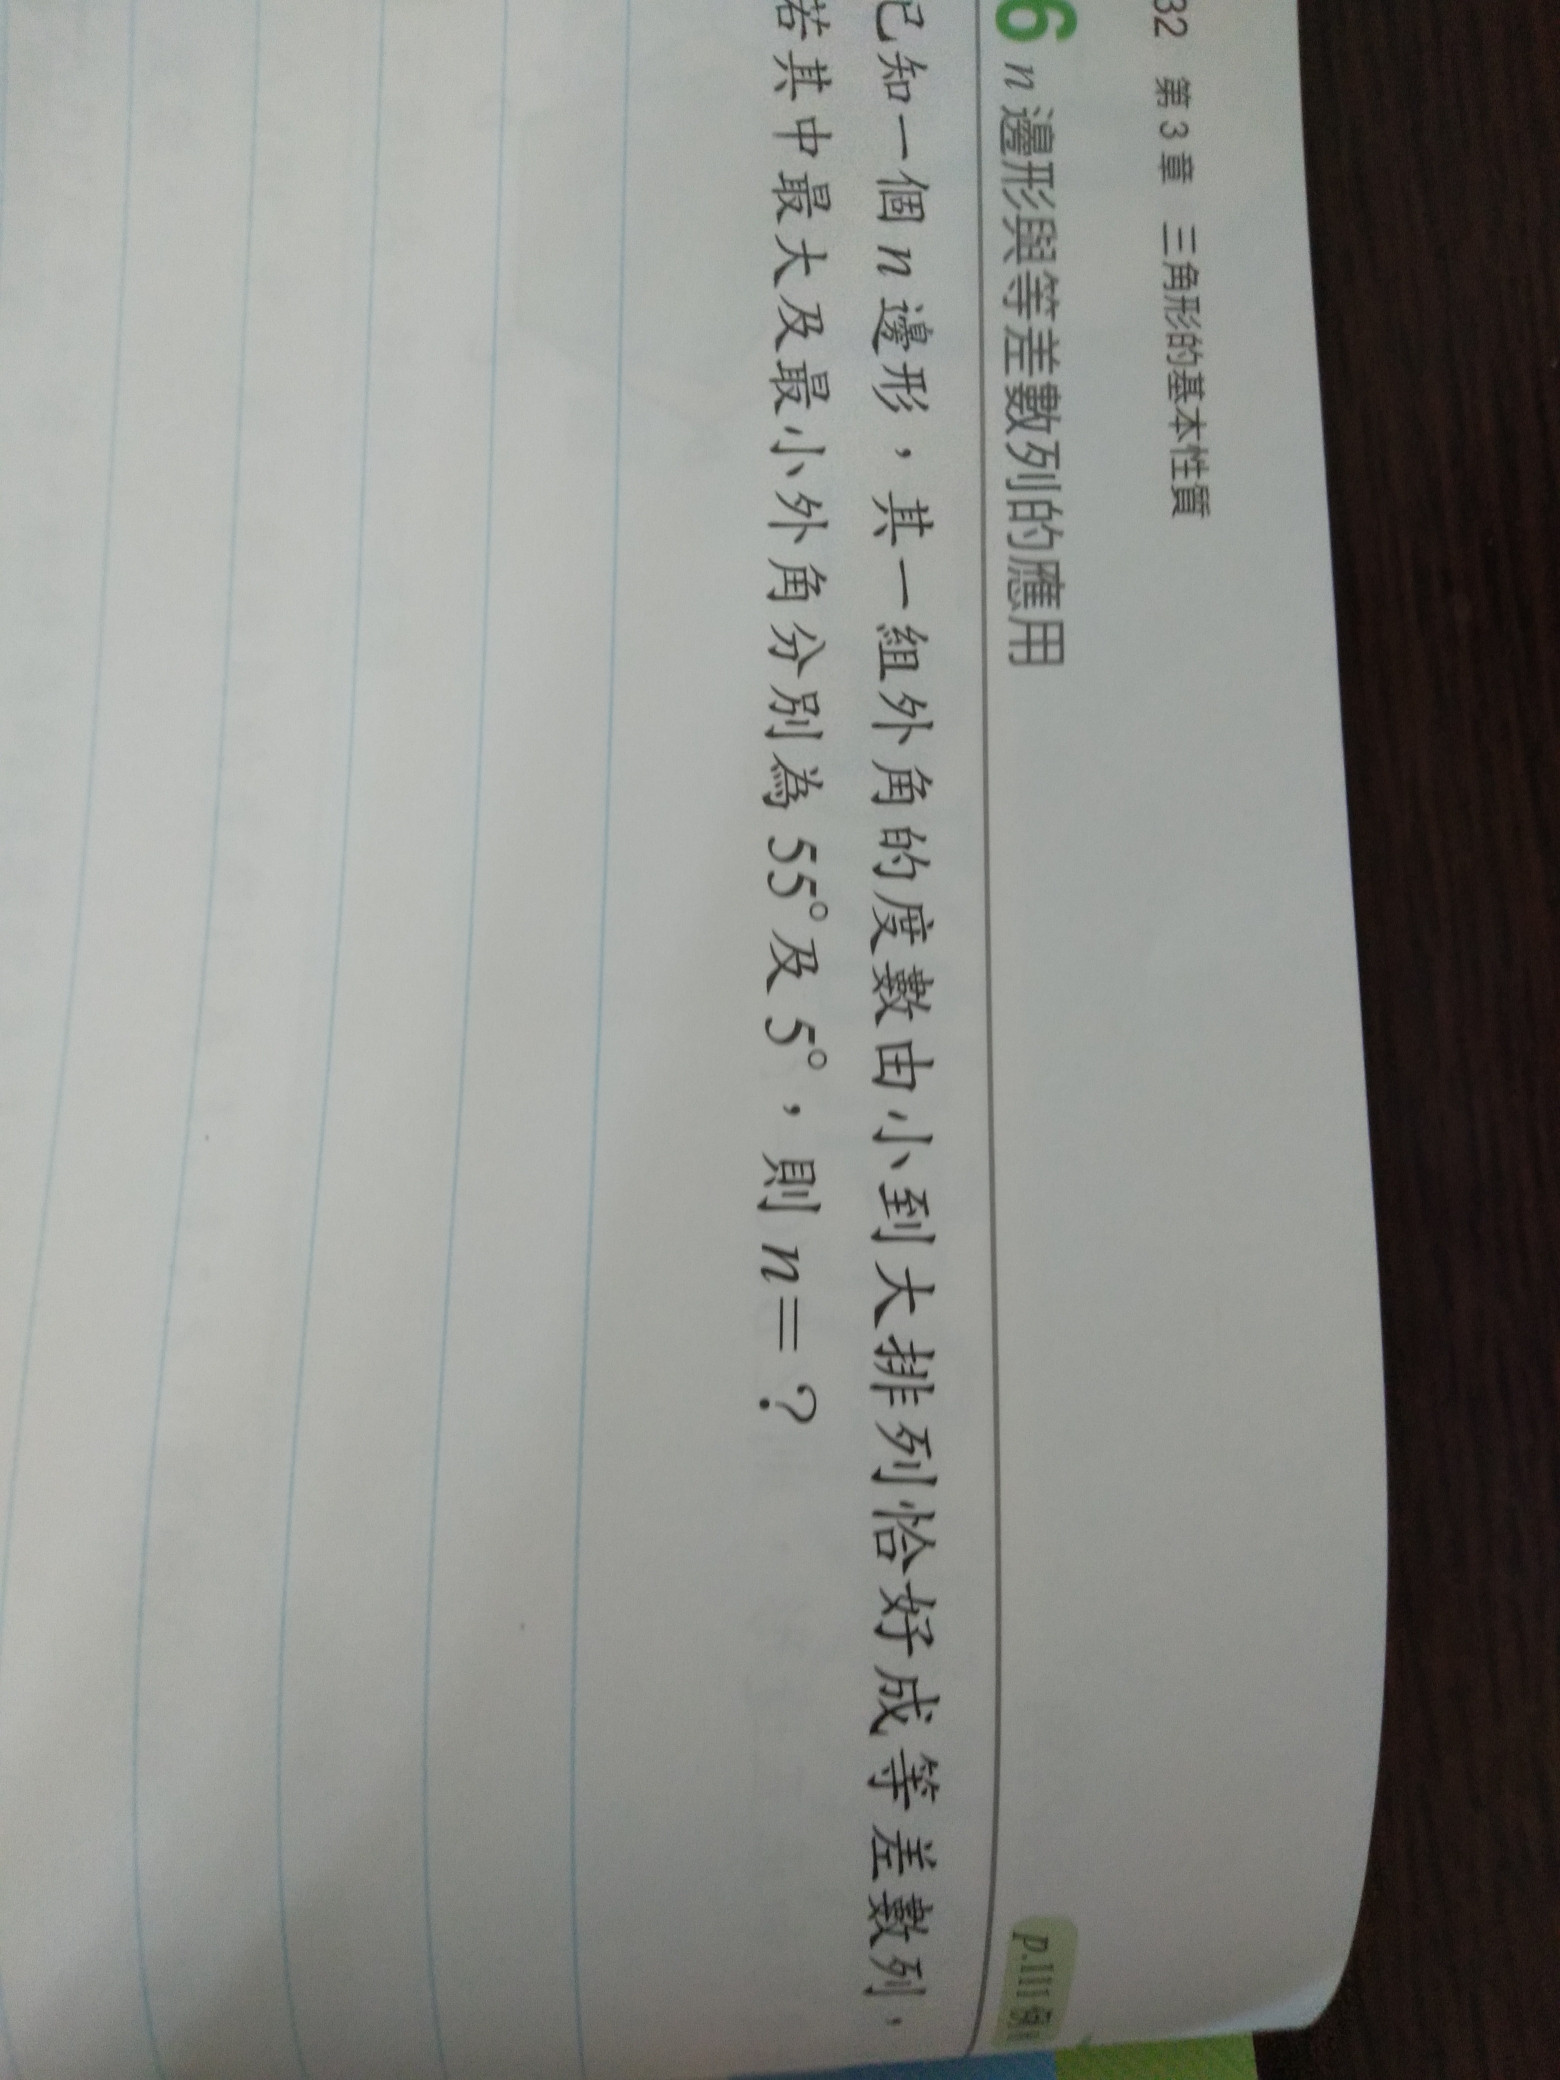 32 第3章 三角形的基本性質
6 n邊形與等差數列的應用
p.111 例
已知一個n邊形，其一組外角的度數由小到大排列恰好成等差數列，
若其中最大及最小外角分別為55°及5°，則n=？